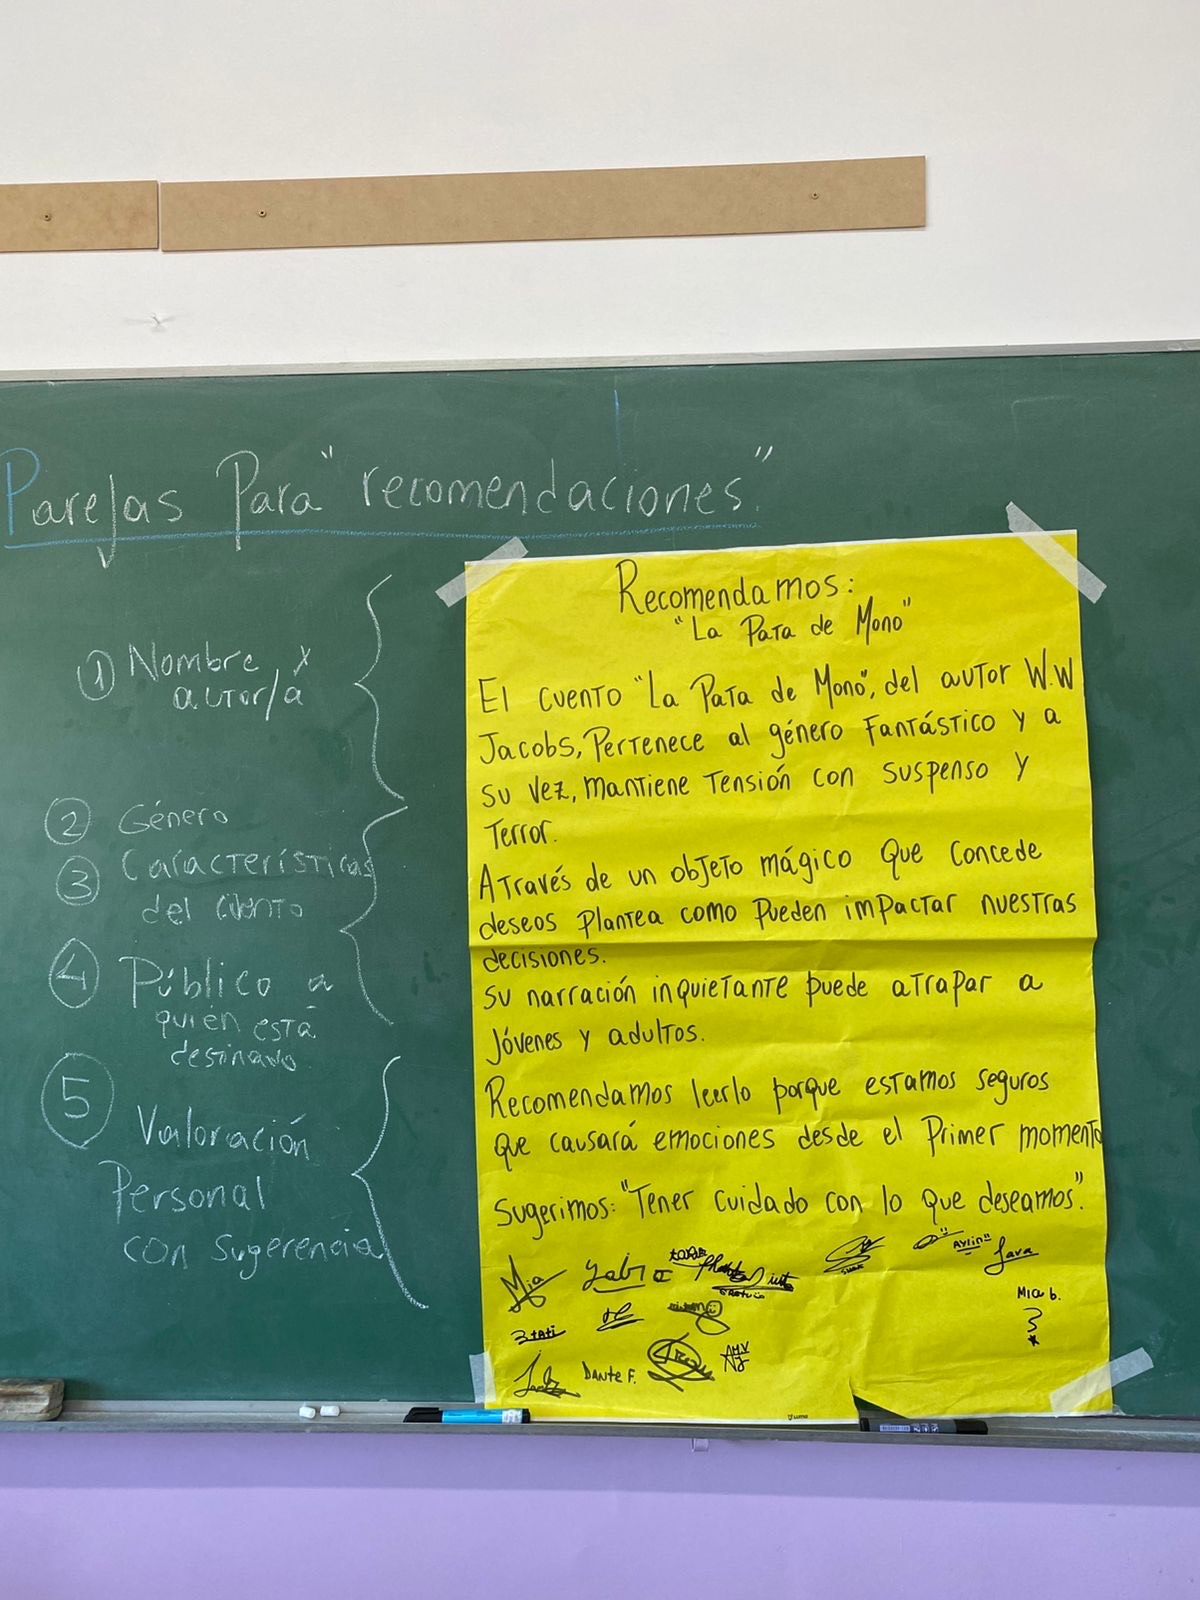 Parejas Para "recomendaciones."
① Nombre y
autor/a
② Género
③ Características
del cuento
④ Público a
quien está
destinado
⑤ Valoración
Personal
con sugerencia
Recomendamos:
"La Pata de Mono"
El cuento "La Pata de Mono", del autor W.W
Jacobs, Pertenece al género Fantástico y a
su vez, mantiene Tensión con suspenso y
Terror.
Através de un objeto mágico que concede
deseos Plantea como Pueden impactar nuestras
decisiones.
Su narración inquietante puede atrapar a
jóvenes y adultos.
Recomendamos leerlo porque estamos seguros
que causará emociones desde el Primer momento
Sugerimos: "Tener cuidado con lo que deseamos".
Mia
Aylin
Mia b.
Dante F.